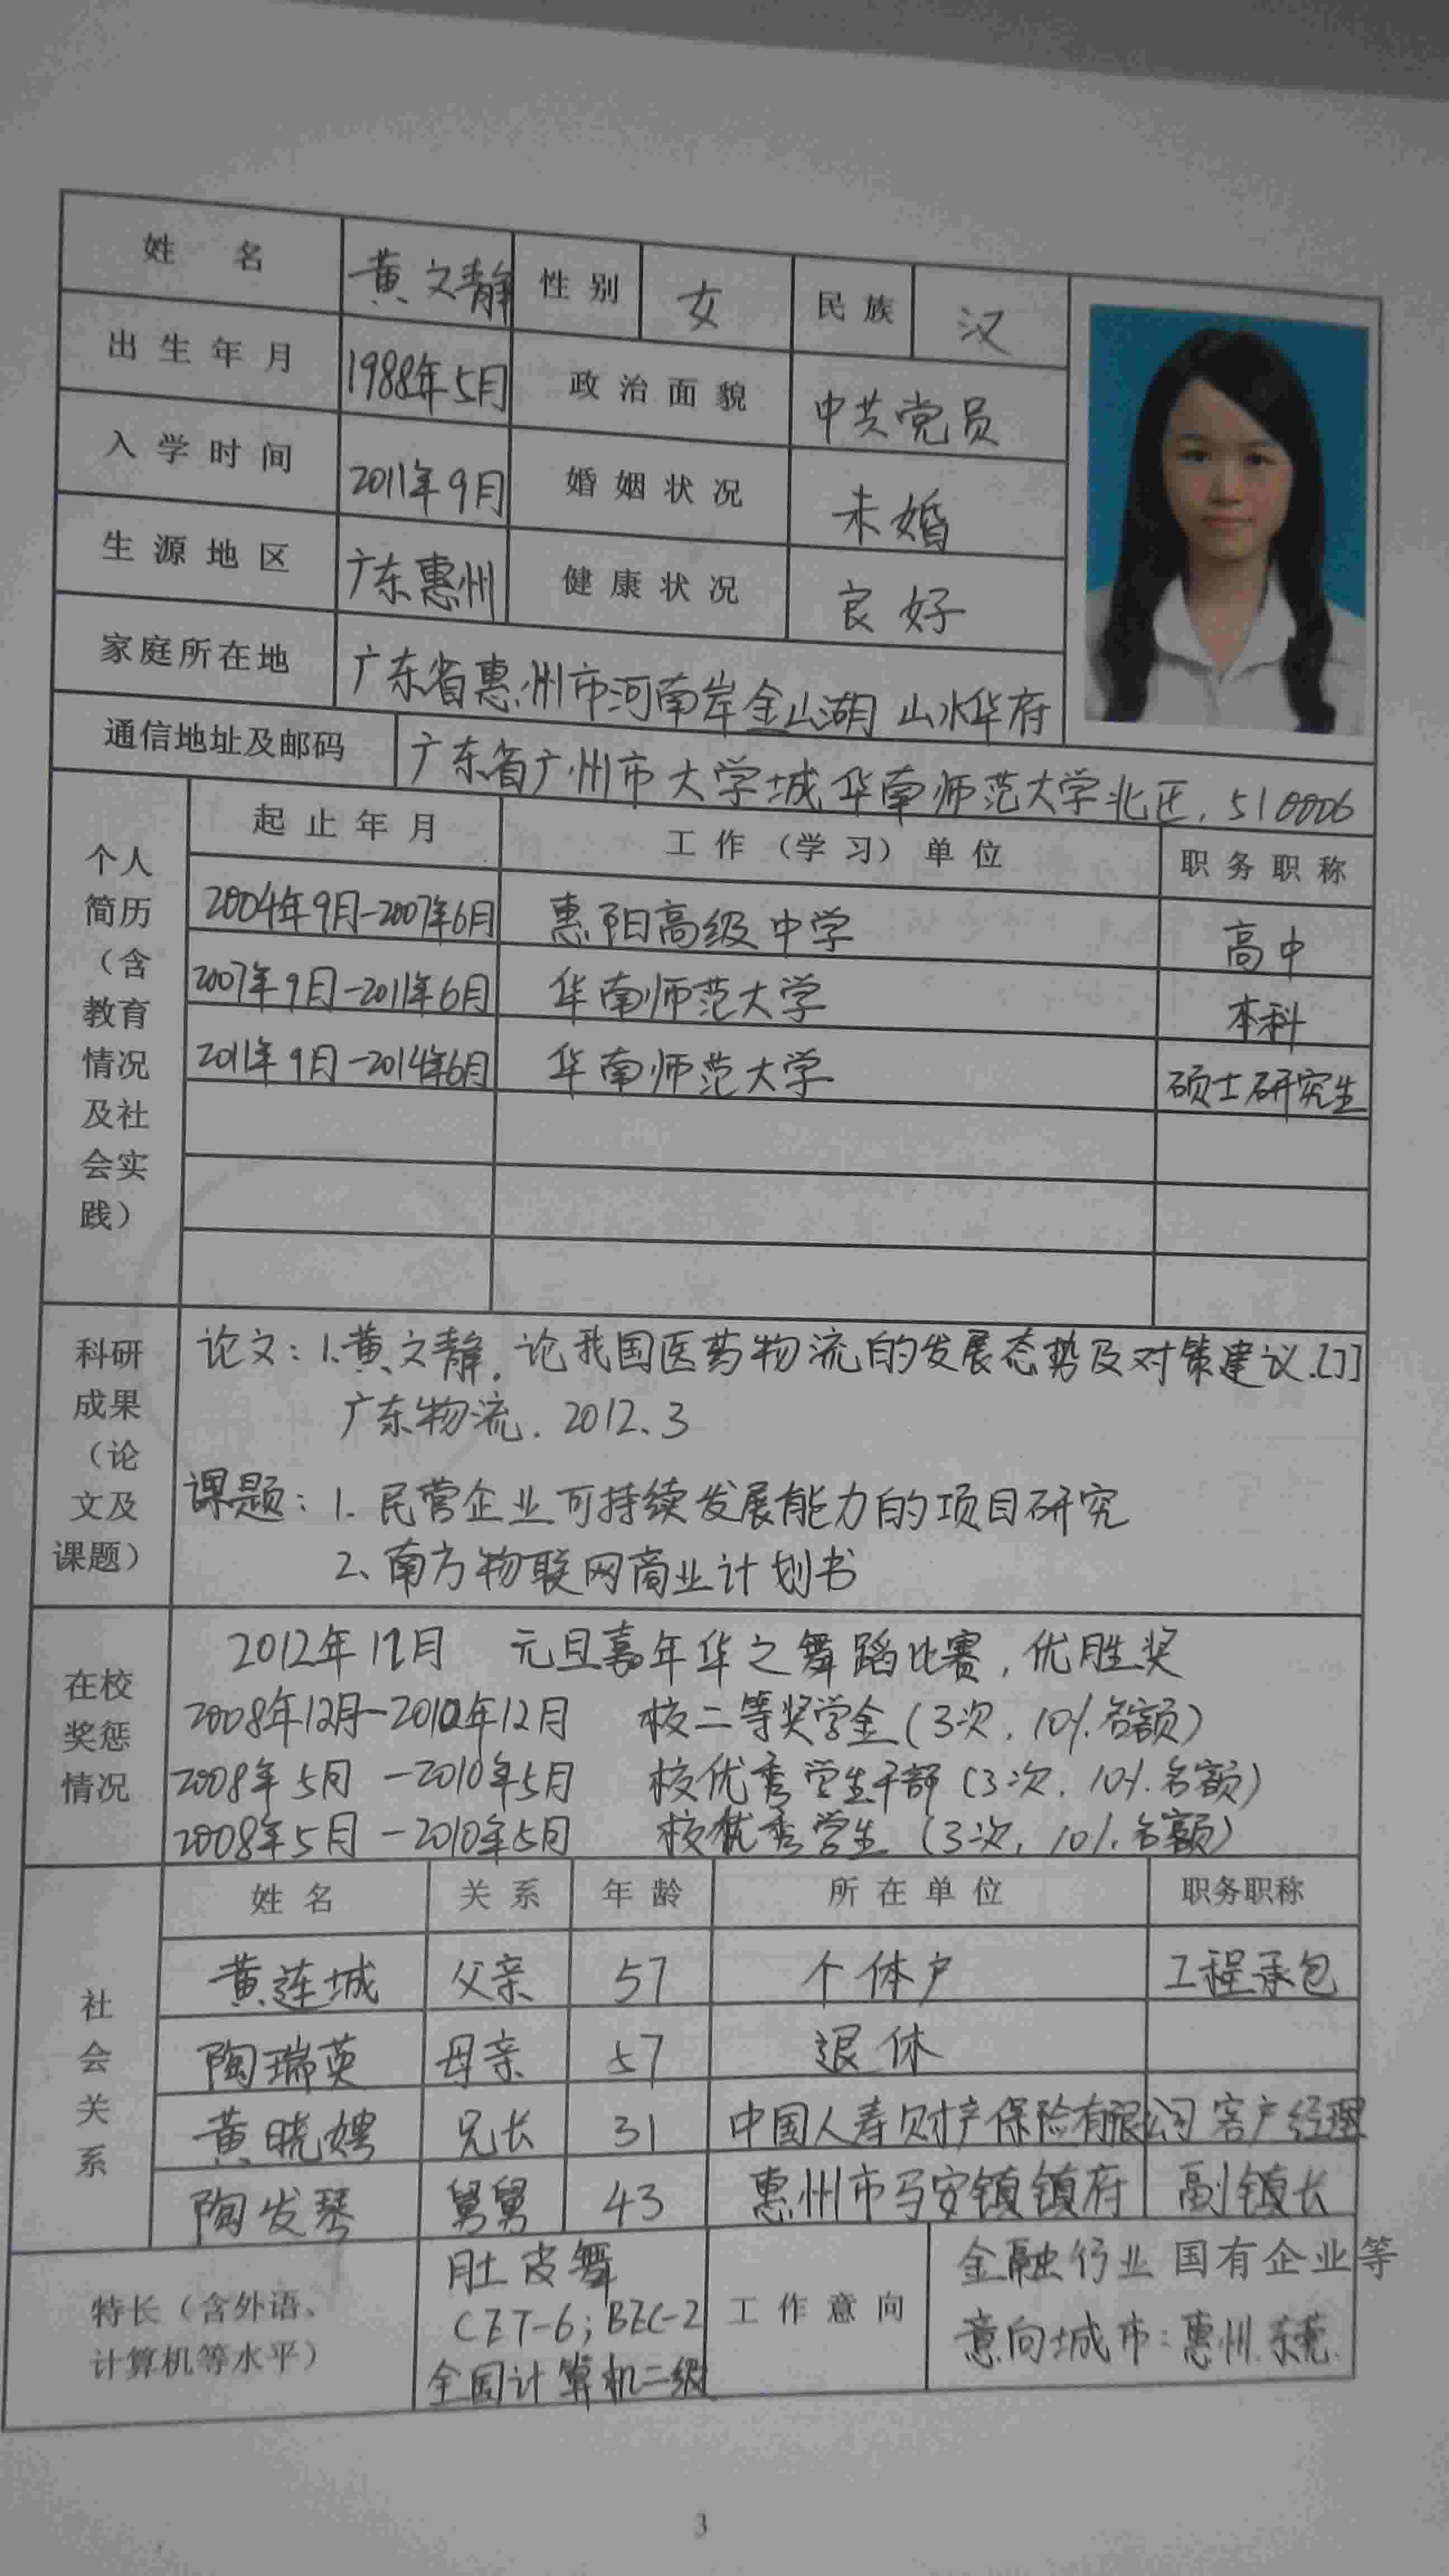 姓 名 黄文静 性别 女 民族 汉
出生年月 1988年5月 政治面貌 中共党员
入学时间 2011年9月 婚姻状况 未婚
生源地区 广东惠州 健康状况 良好
家庭所在地 广东省惠州市河南岸金山湖 山水华府
通信地址及邮码 广东省广州市大学城华南师范大学北区, 510006
个人
简历
（含
教育
情况
及社
会实
践）
起止年月 工作（学习）单位 职务职称
2004年9月-2007年6月 惠阳高级中学 高中
2007年9月-2011年6月 华南师范大学 本科
2011年9月-2014年6月 华南师范大学 硕士研究生
科研
成果
（论
文及
课题）
论文：1.黄文静. 论我国医药物流的发展态势及对策建议.[J]
广东物流. 2012.3
课题：1. 民营企业可持续发展能力的项目研究
2、南方物联网商业计划书
在校
奖惩
情况
2012年12月 元旦嘉年华之舞蹈比赛, 优胜奖
2008年12月-2010年12月 校二等奖学金(3次, 10%名额)
2008年5月-2010年5月 校优秀学生干部(3次, 10%名额)
2008年5月-2010年5月 校优秀学生(3次, 10%名额)
社
会
关
系
姓名 关系 年龄 所在单位 职务职称
黄连城 父亲 57 个体户 工程承包
陶瑞英 母亲 57 退休
黄晓娉 兄长 31 中国人寿财产保险有限公司 客户经理
陶发琴 舅舅 43 惠州市马安镇镇府 副镇长
特长（含外语、
计算机等水平）
肚皮舞
CET-6; BEC-2
全国计算机二级
工作意向
金融行业 国有企业等
意向城市：惠州.东莞.
3